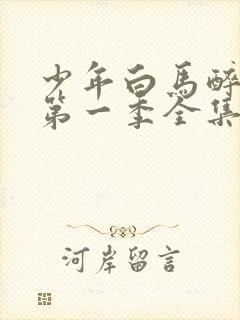 少年白馬醉
第一季全集
河岸留言